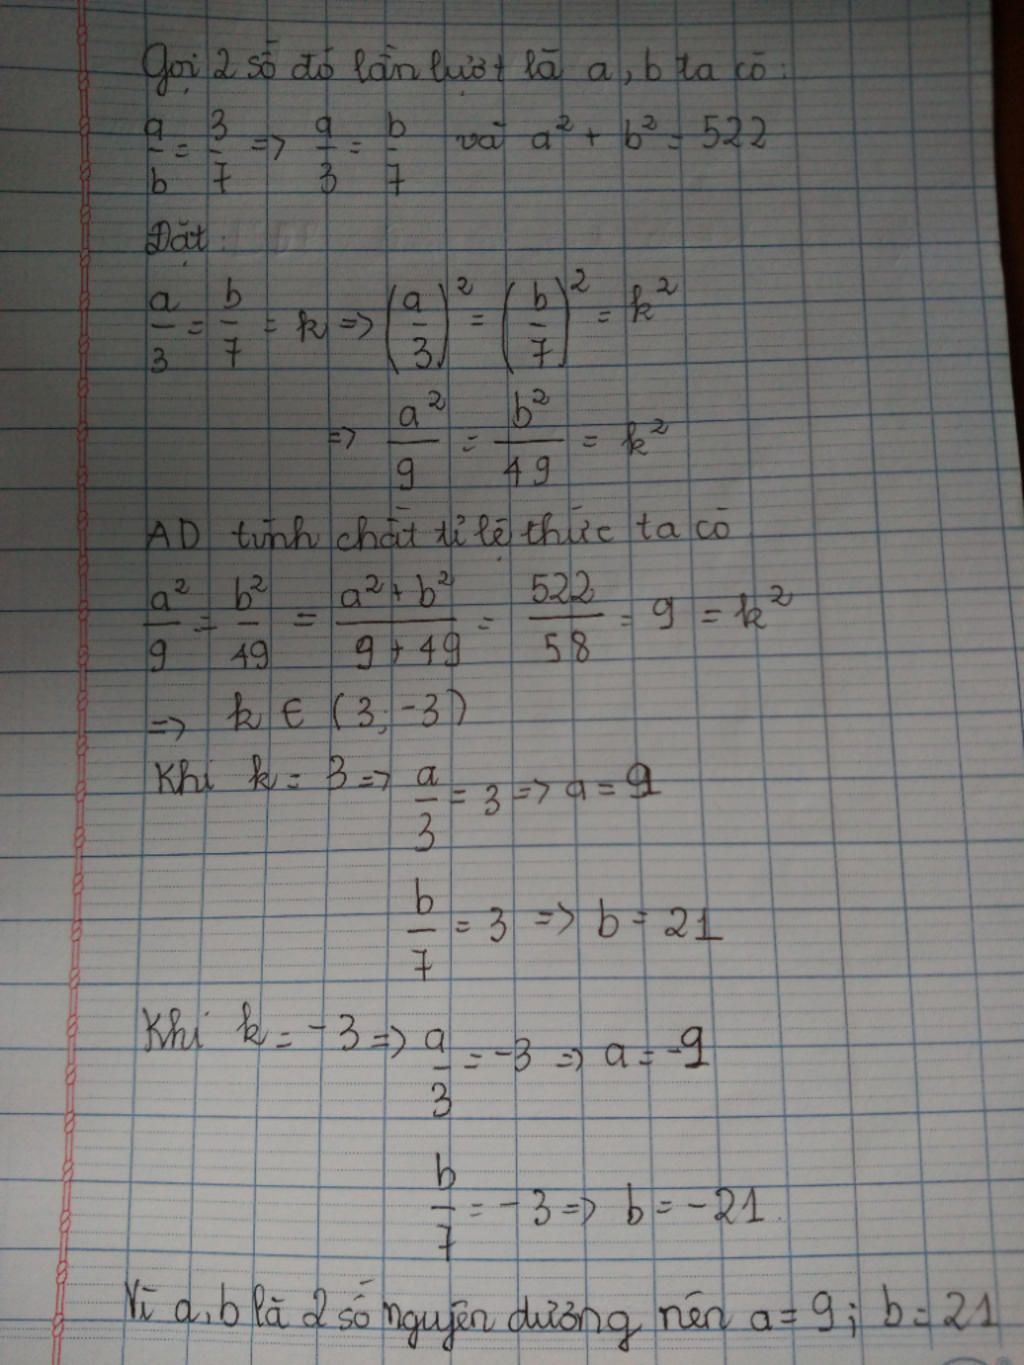 Gọi 2 số đó lần lượt là a, b ta có:
a/b = 3/7 => a/3 = b/7 và a² + b² = 522
Đặt:
a/3 = b/7 = k => (a/3)² = (b/7)² = k²
=> a²/9 = b²/49 = k²
AD tính chất tỉ lệ thức ta có
a²/9 = b²/49 = (a² + b²)/(9 + 49) = 522/58 = 9 = k²
=> k ∈ (3; -3)
Khi k = 3 => a/3 = 3 => a = 9
b/7 = 3 => b = 21
Khi k = -3 => a/3 = -3 => a = -9
b/7 = -3 => b = -21
Vì a, b là 2 số nguyên dương nên a = 9; b = 21